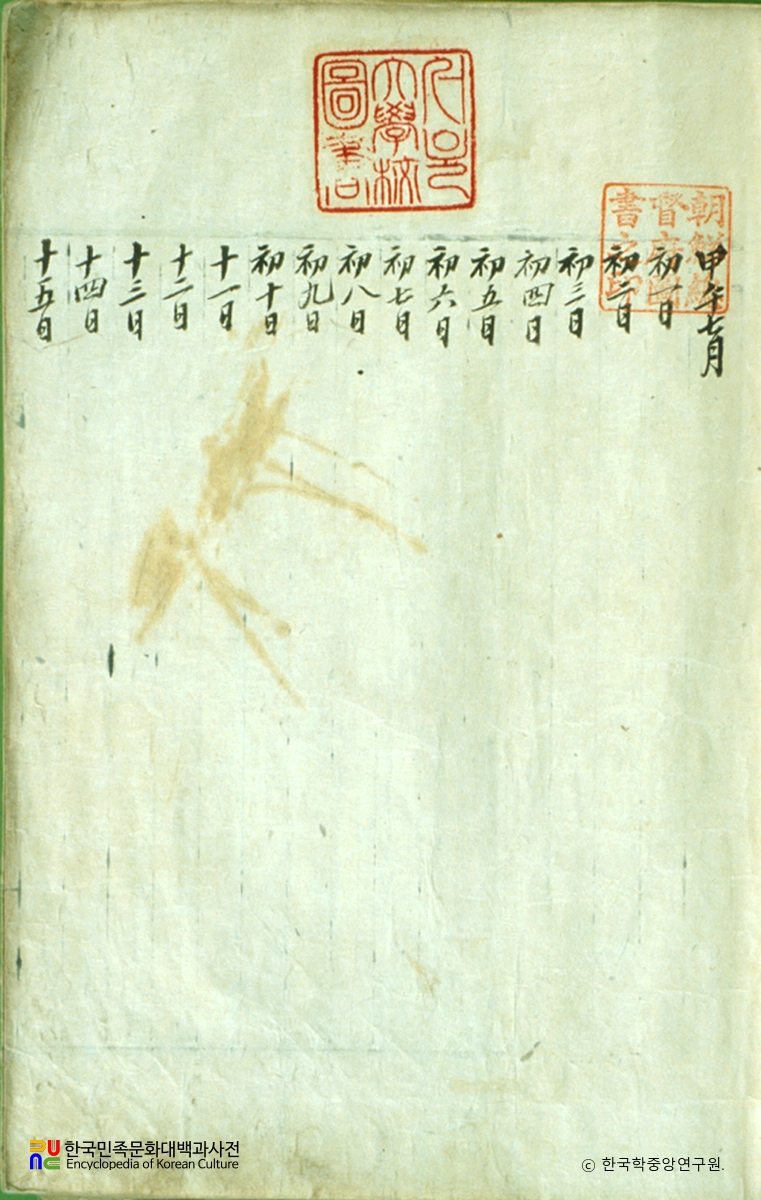 서울
大學校
圖書
朝鮮總
督府圖
書之印
甲午七月
初一日
初二日
初三日
初四日
初五日
初六日
初七日
初八日
初九日
初十日
十一日
十二日
十三日
十四日
十五日
한국민족문화대백과사전
Encyclopedia of Korean Culture
ⓒ 한국학중앙연구원.